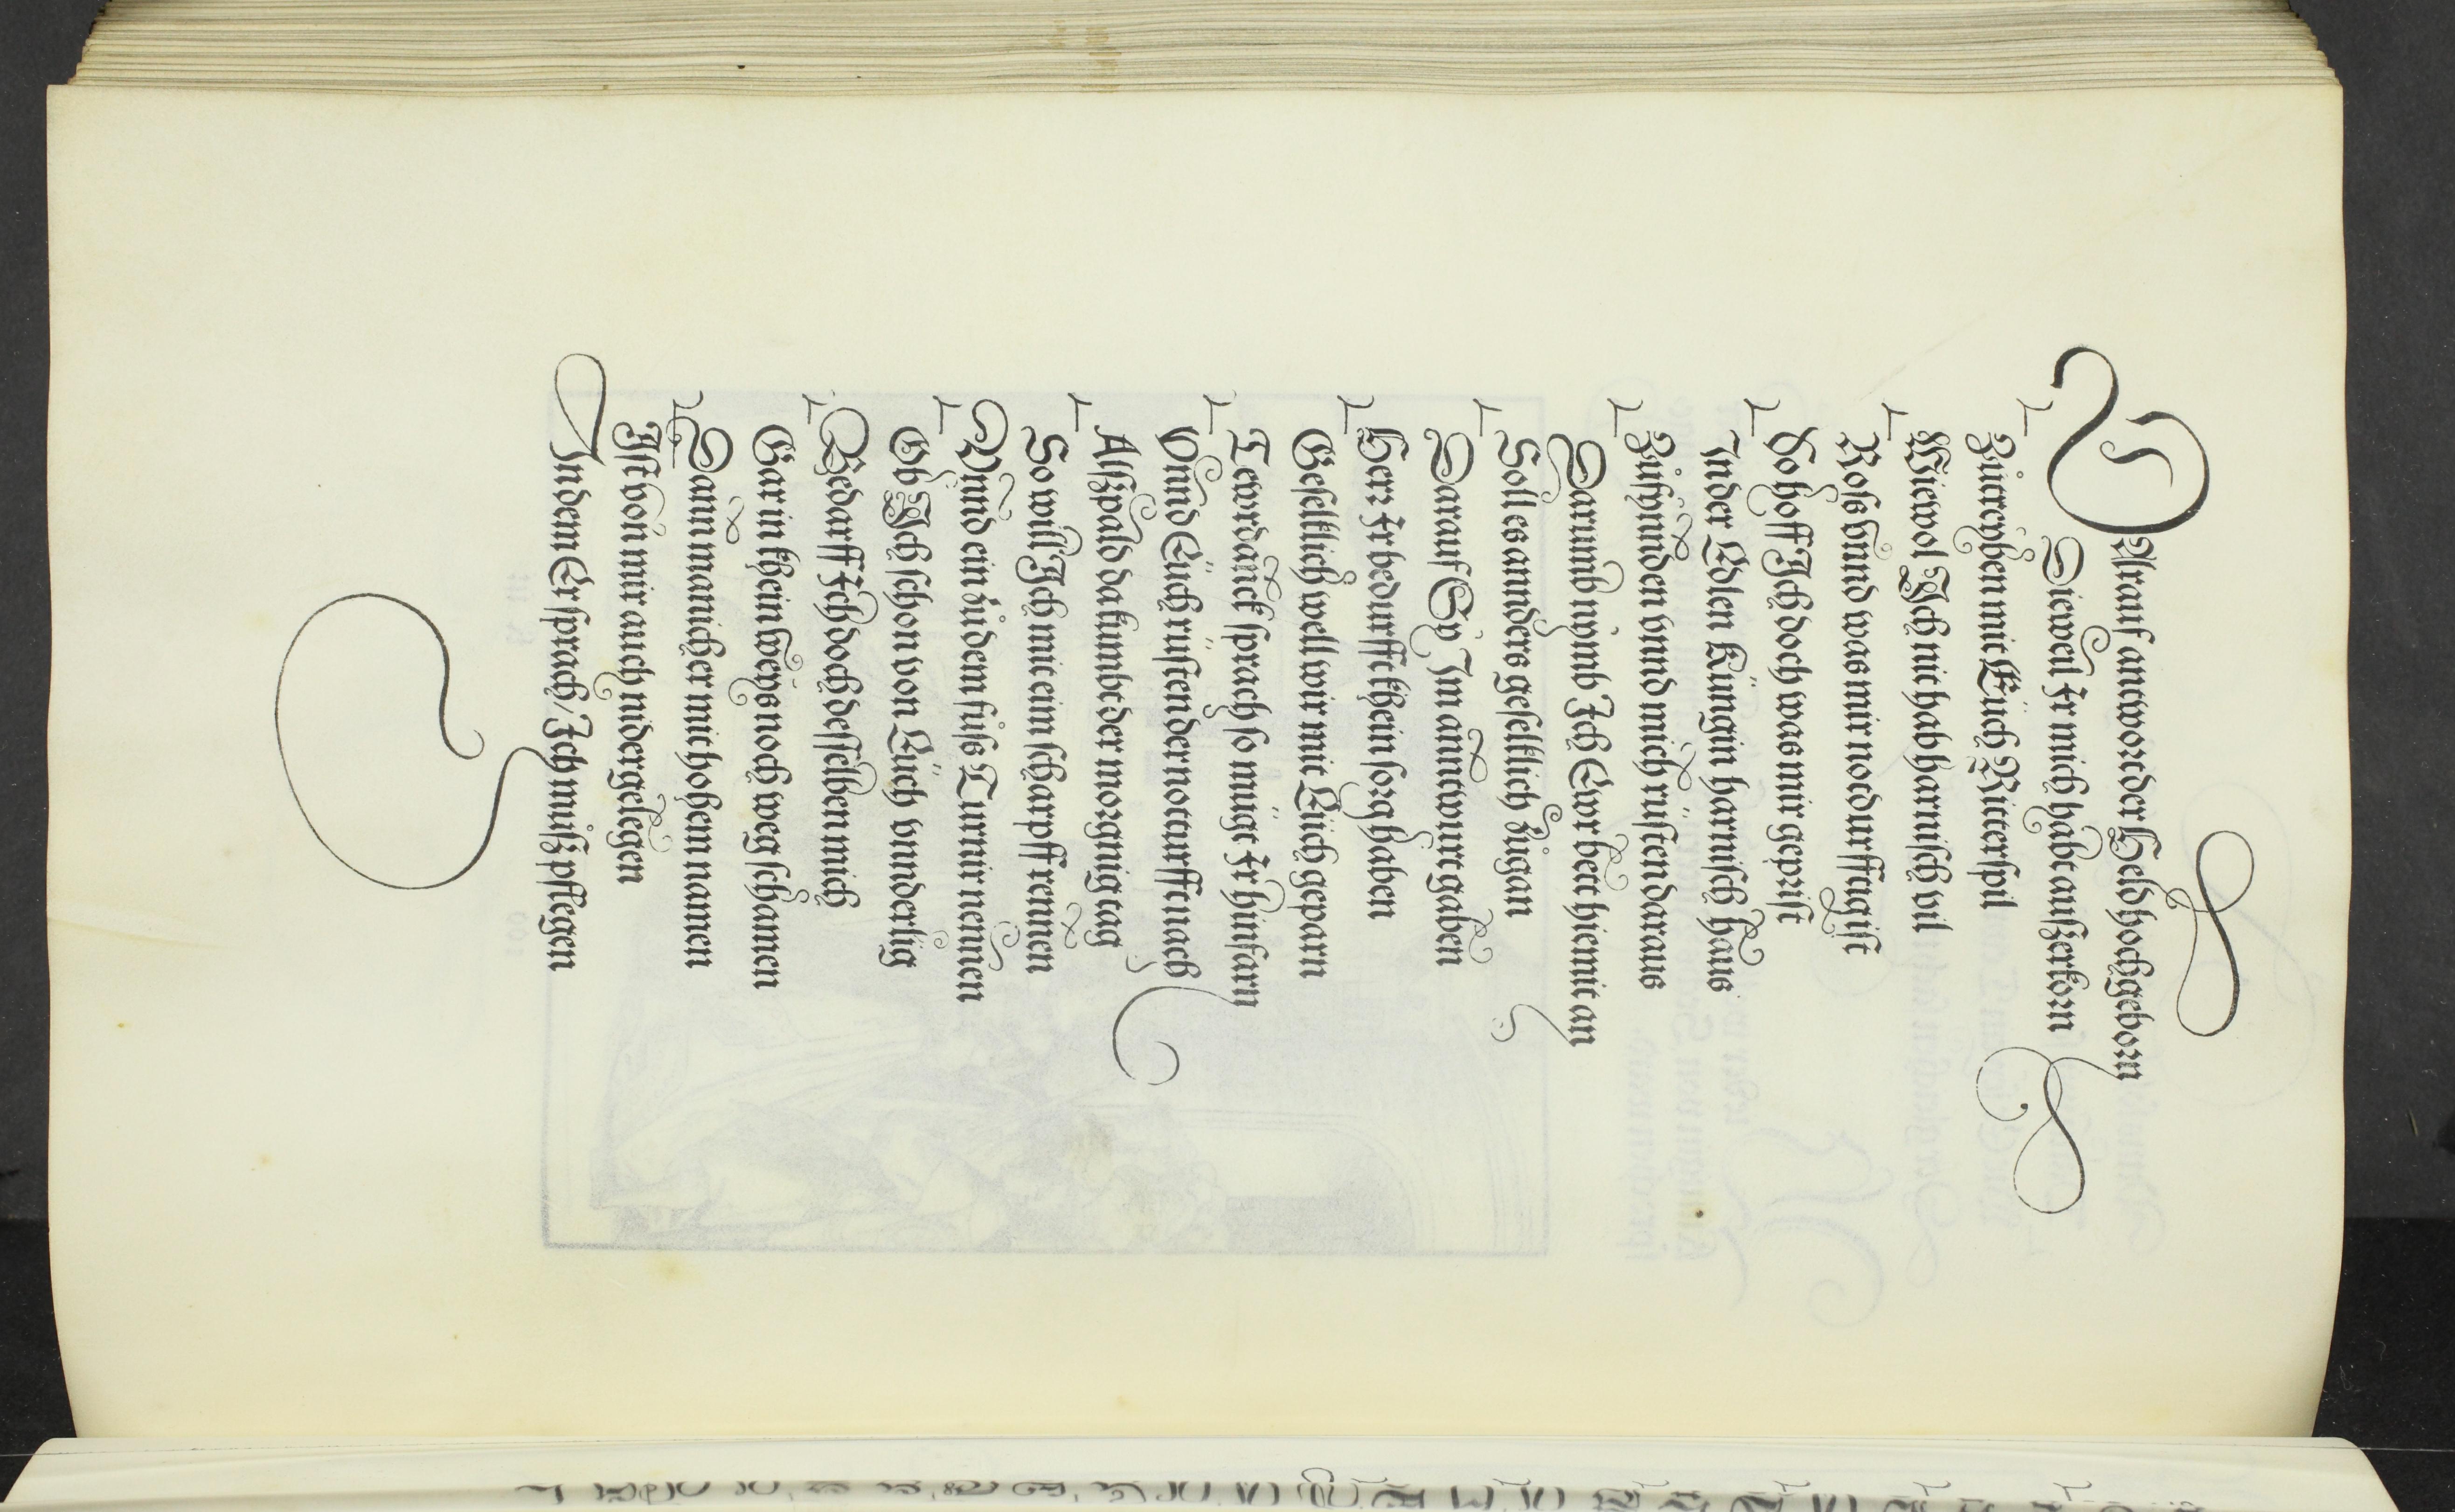 Darauf antwort der Held hochgeborn
Dieweil Ir mich habt außerkorn
Zůtreyben mit Eüch Ritterspil
Wiewol Ich nit hab harnisch vil
Ross vnnd was mir notdurfftig ist
So hoff Ich doch was mir geprist
In der Edlen Küngin harnisch haus
Zůfynnden vnnd mich rüsten daraus
Darumb nymb Ich Ewr bett hiemit an
Soll es annders gesellklich zůgan
Darauf Sy Im anntwurt gaben
Herr Ir bedurfft khein sorg haben
Gesellklich well wir mit Eüch geparn
Tewrdanck sprach so müget Ir hinfarn
Vnnd Eüch rüsten der notturfft nach
Alßpald da kumbt der morgnig tag
So will Ich mit eim scharpff rennen
Vnnd ein zů dem fůss Turnir nennen
Ob Ich schon von Eüch vnnderlig
Bedarff Ich doch desselben mich
Gar in khein weys noch weg schamen
Dann manicher mit hohem namen
Ist von mir auch nidergelegen
In dem Er sprach / Ich můß pflegen